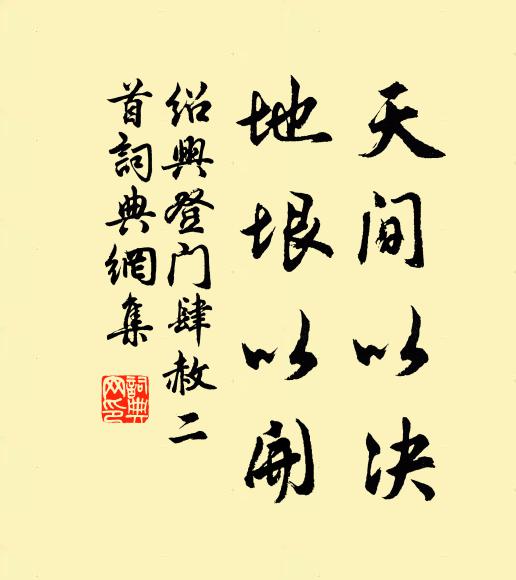 天间以决
地垠以開
绍興登门肆赦二
首詞典網集
詞典
网印